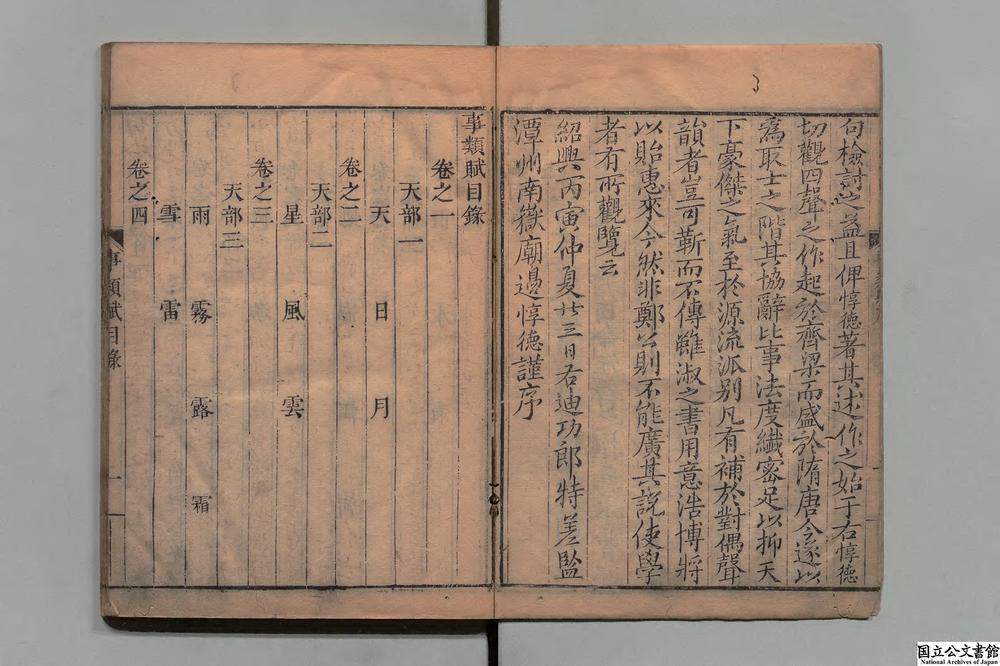 句檢討之益且俾惇德著其述作之始于右惇德
切觀四聲之作起於齊梁而盛於隋唐今遂以
爲取士之階其協辭比事法度纖密足以抑天
下豪傑之氣至於源流派别凡有補於對偶聲
韻者豈可靳而不傳雖淑之書用意浩博將
以貽惠來今然非鄭公則不能廣其說使學
者有所觀覽云
紹興丙寅仲夏廿三日右迪功郎特差監
潭州南嶽廟邉惇德謹序
事類賦目錄
卷之一
天部一
天 日 月
卷之二
天部二
星 風 雲
卷之三
天部三
雨 霧 露 霜
雪 雷
卷之四
事類賦目錄
一
国立公文書館
National Archives of Japan